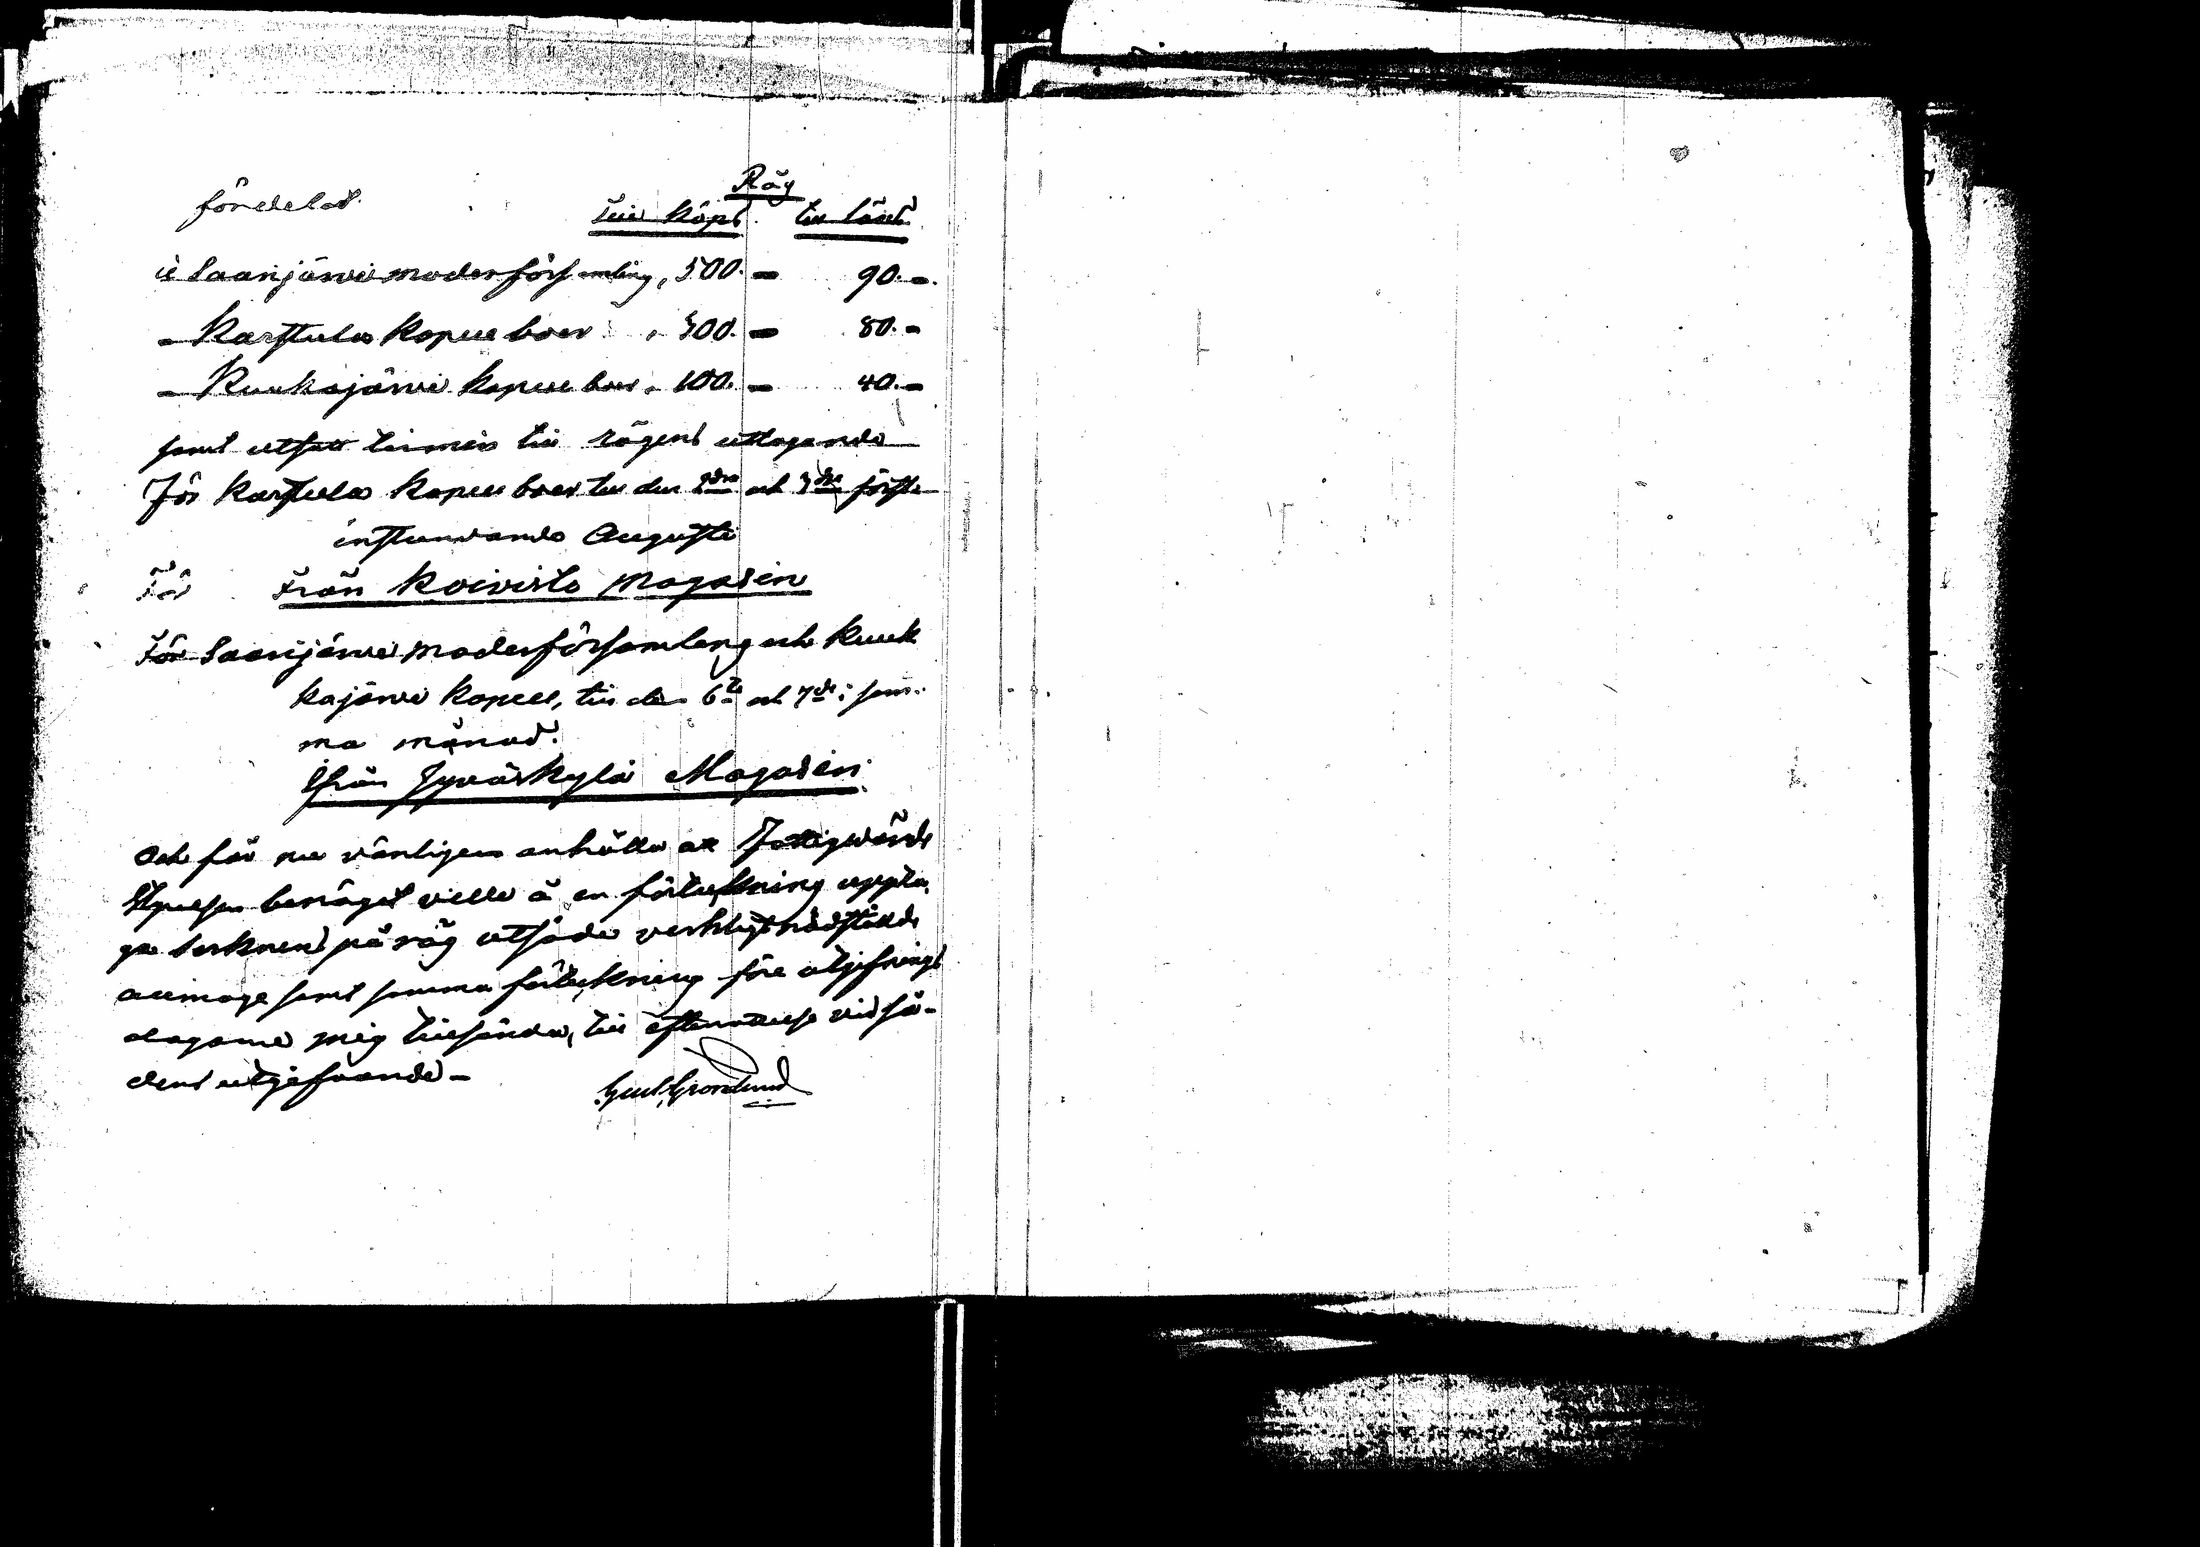 Råg
fördelat till köps till låns
i Saarijärvi moderförsamling, 500. - 90. -
- Karstula kapell boer . 300. - 80. -
- Kuukajärvi kapell boer . 100. - 40. -
samt utsatt termin till rågens uttagande
För Karstula kapell boer till den 2dra och 3dje förste
instundande Augusti
För Från Koivisto Magasin
För Saarijärvi moderförsamling och Kuuk
kajärvi kapell, till den 6te och 7de i sam-
ma månad.
Ifrån Jyväskylä Magasin
Och får nu vänligen anhålla att Fattigvårds
Styrelsen benäget ville å en förteckning uppta-
ga serknend på råg utsäde verkligt nödstälde
allmoge samt samma förteckning före utgifnings
dagarne mig tillsända, till efterrättelse vid sä-
dens utgifvande -
Gust. Grönlund